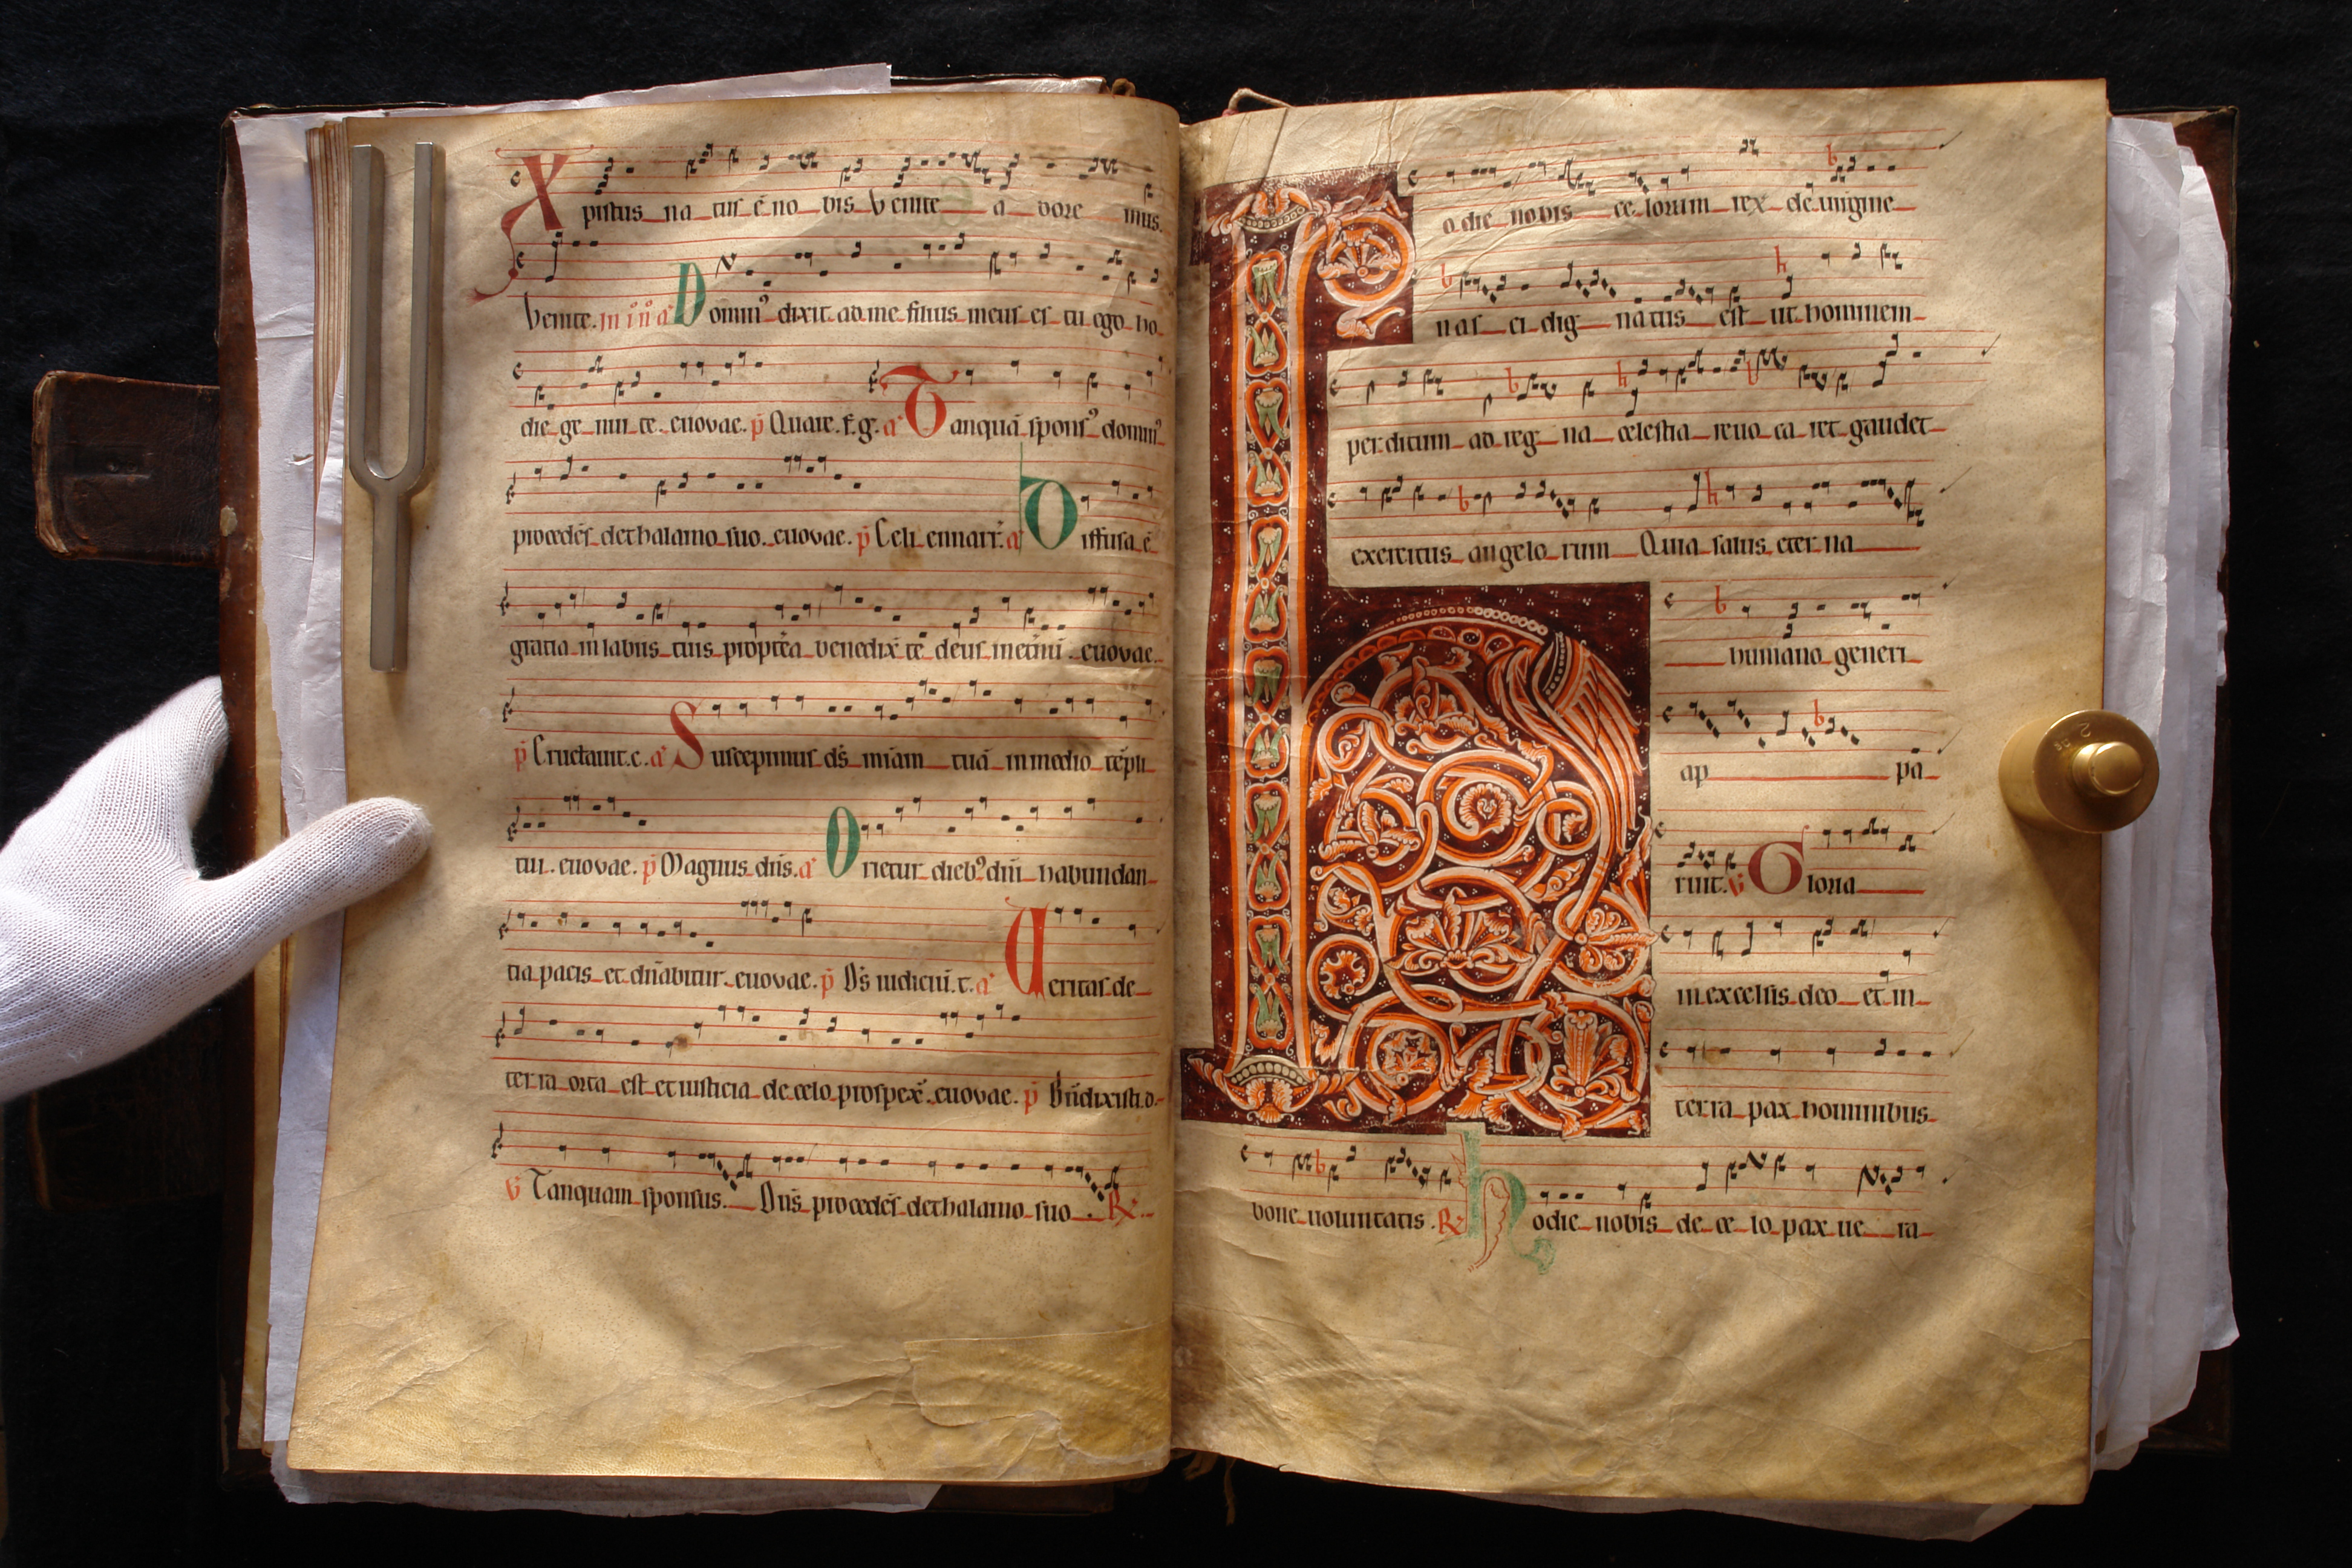 Xpistus na tus ē no bis Venite a dore mus.
Venite. in i nō a Domin⁹ dixit ad me filius meus es tu ego ho
die ge nui te. euouae. p̄ Quare. f. g. a Tanquā spons⁹ domin⁹
procedēs de thalamo suo. euouae. p̄ Celi ennarr̄. a Diffusa ē
gratia in labiis tuis propterea benedix̄ te deus in et̄nū. euouae.
p̄ Eructauit. c. a Suscepimus ds̄ miām tuā in medio tēpli
tui. euouae. p̄ Magnus dn̄s. a Orietur dieb⁹ dn̄i habundan
tia pacis et dn̄abitur. euouae. p̄ Ds̄ iudiciū. t. a Ueritas de
terra orta est et iusticia de celo prospex̄. euouae. p̄ Bn̄dixisti. d.
v̄ Tanquam sponsus. Dn̄s procedēs de thalamo suo. R⁊
Hodie nobis ce lorum rex de uirgine
nas ci dig natus est ut hominem
perditum ad reg na celestia reuo ca ret gaudet
exercitus angelo rum Quia salus eter na
humano generi
ap pa
ruit. v̄ Gloria
in excelsis deo et in
terra pax hominibus
bone uoluntatis. R⁊ hodie nobis de ce lo pax ue ra
2